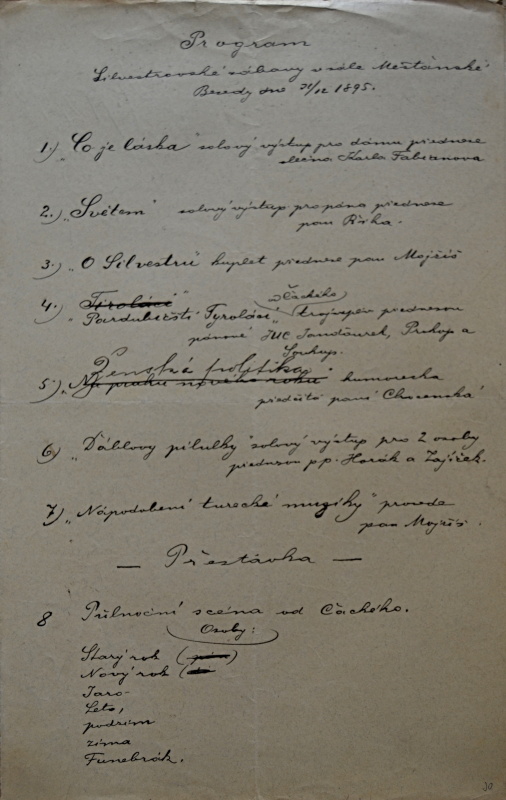 Program
Silvestrovské zábavy v sále Mešťánské
Besedy dne 31/12 1895.
1.) „Co je láska" solový výstup pro dámu přednese
slečna Karla Fabianova
2.) „Světem" solový výstup pro pána přednese
pan Říha.
3.) „O Silvestru" kuplet přednese pan Mojžíš
4.) „Tiroláci"
od Čackého
„Pardubičtí Tyroláci" trojzpěv přednesou
pánové JUC Jandourek, Prokop a
Soukup.
Ženská politika
5.) „Na prahu nového roku" humoreska
předčítá paní Chocenská
6.) „Ďáblovy pilulky" solový výstup pro 2 osoby
přednesou p.p. Horák a Zajíček.
7.) „Nápodobení turecké muziky" provede
pan Mojžíš.
— Přestávka —
8 Půlnoční scéna od Čackého.
Osoby:
Starý rok
Nový rok
Jaro
Leto,
podzim
zima
Funebrák.
30